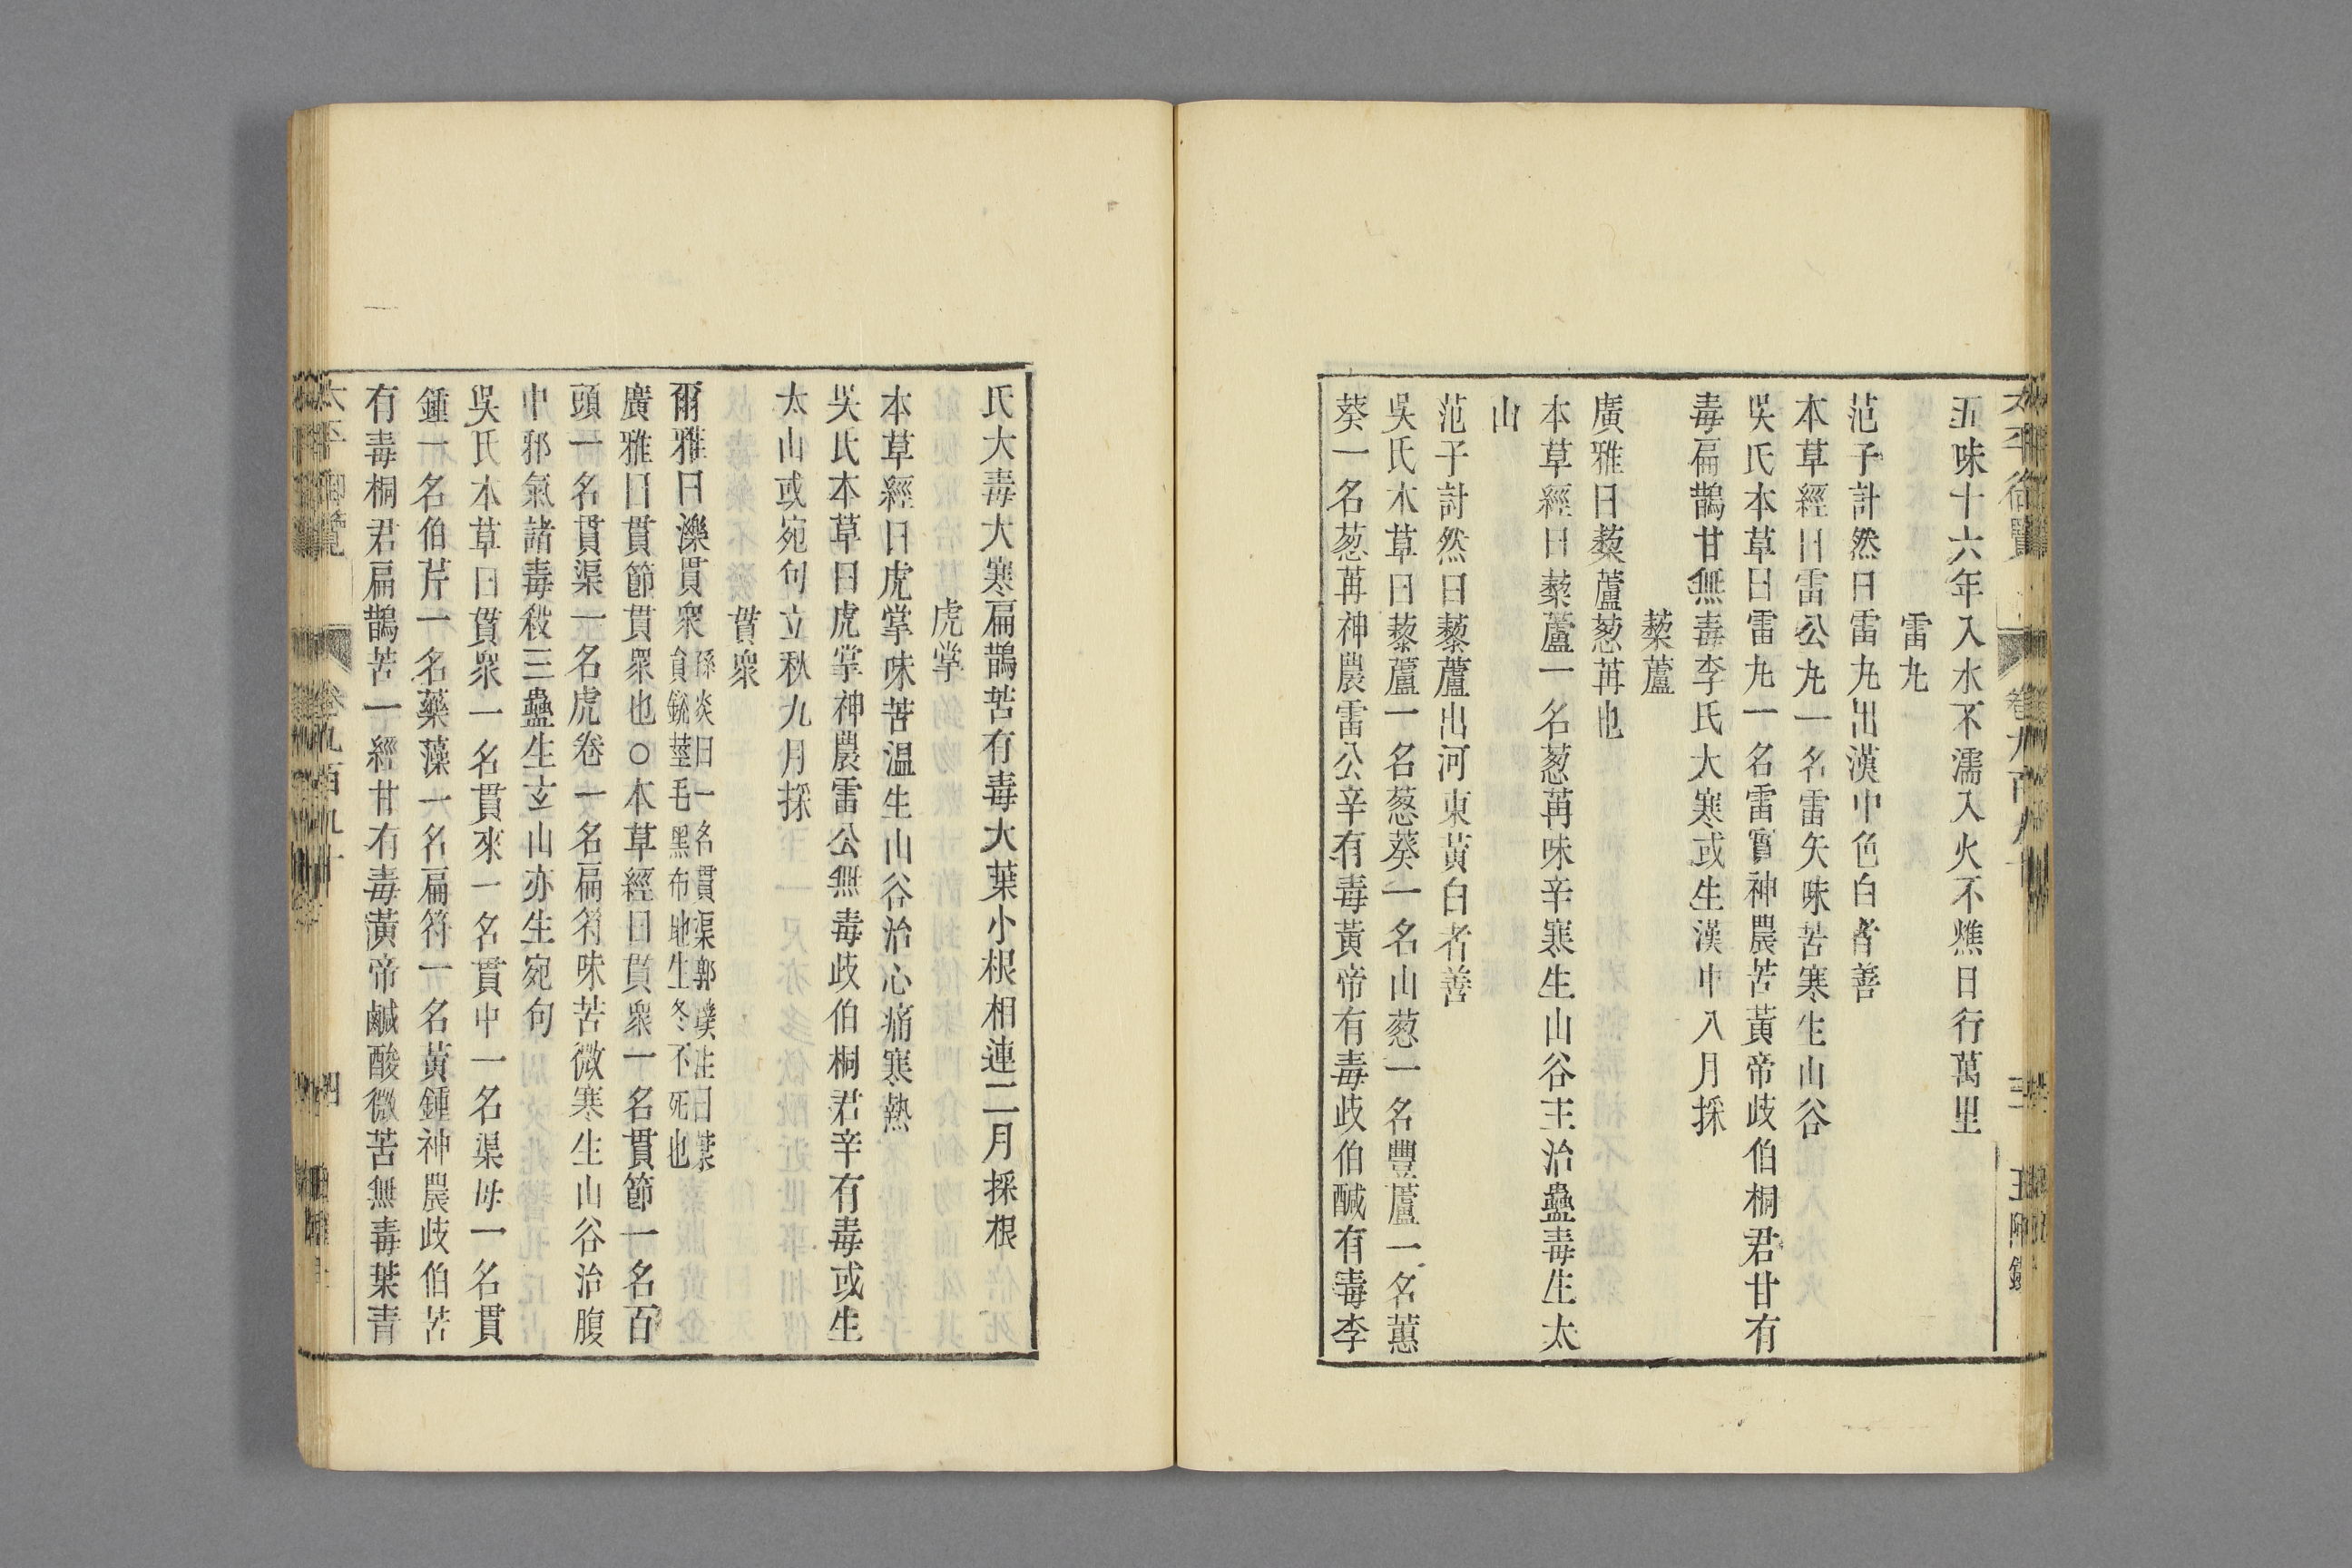 五味十六年入水不濡入火不燋日行萬里
雷丸
范子計然曰雷丸出漢中色白者善
本草經曰雷公丸一名雷矢味苦寒生山谷
吳氏本草曰雷丸一名雷實神農苦黃帝歧伯桐君甘有
毒扁鵲甘無毒李氏大寒或生漢中八月採
藜蘆
廣雅曰藜蘆葱苒也
本草經曰藜蘆一名葱苒味辛寒生山谷主治蠱毒生太
山
范子計然曰藜蘆出河東黃白者善
吳氏本草曰藜蘆一名葱葵一名山葱一名豐蘆一名蕙
葵一名葱苒神農雷公辛有毒黃帝有毒歧伯醎有毒李
氏大毒大寒扁鵲苦有毒大葉小根相連二月採根
虎掌
本草經曰虎掌味苦温生山谷治心痛寒熱
吳氏本草曰虎掌神農雷公無毒歧伯桐君辛有毒或生
太山或宛句立秋九月採
貫衆
爾雅曰濼貫衆孫炎曰一名貫渠郭璞注曰葉
貟銳莖毛黑布地生冬不死也
廣雅曰貫節貫衆也○本草經曰貫衆一名貫節一名百
頭一名貫渠一名虎卷一名扁符味苦微寒生山谷治腹
中邪氣諸毒殺三蠱生玄山亦生宛句
吳氏本草曰貫衆一名貫來一名貫中一名渠母一名貫
鍾一名伯芹一名藥藻一名扁符一名黃鍾神農歧伯苦
有毒桐君扁鵲苦一經甘有毒黃帝鹹酸微苦無毒葉青
太平御覽
卷九百九十
四